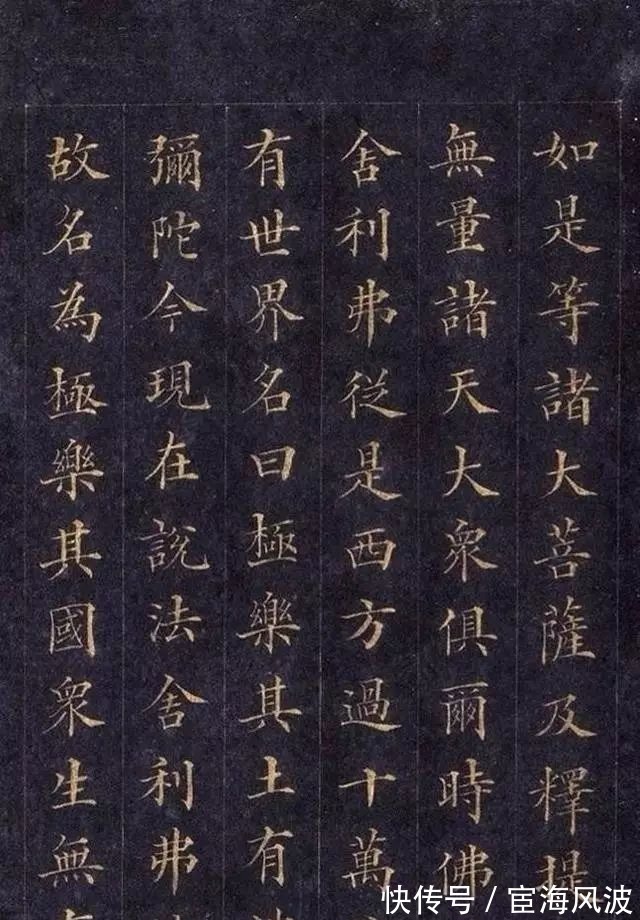 如是等諸大菩薩及釋提
無量諸天大衆俱爾時佛
舍利弗從是西方過十萬
有世界名曰極樂其土有
彌陀今現在說法舍利弗
故名為極樂其國衆生無
快传号／宦海风波